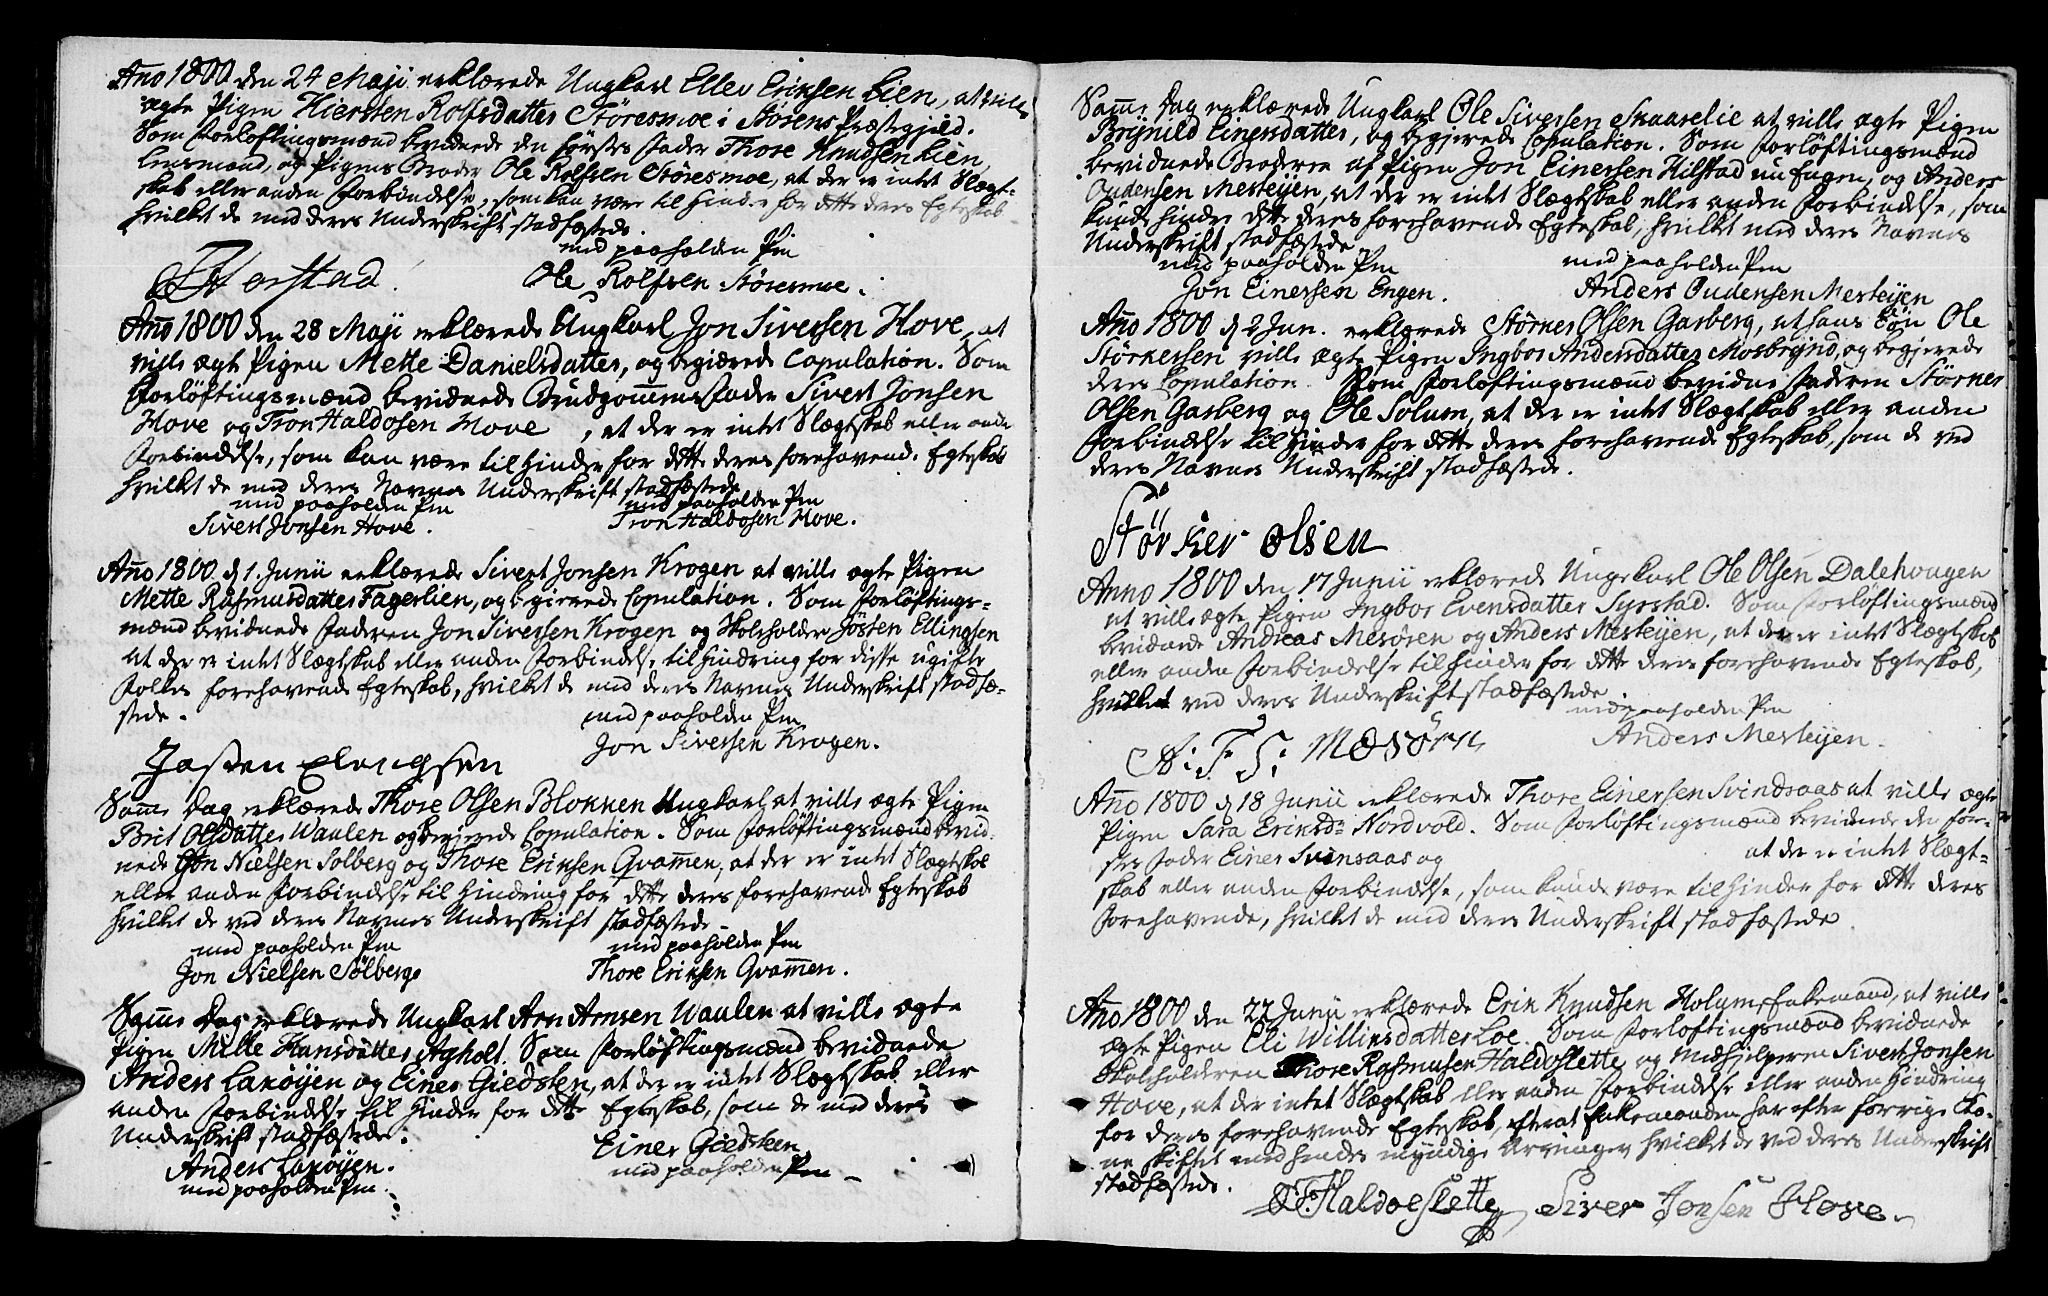 Año 1800 den 24 Maji erklærede Ungkarl Ellev Eriksen Lien, at ville
ægte Pigen Kiersten Rolfsdatter Störesmoe i Störens Præstegjeld.
Som Forlöftingsmænd bevidnede den förstes Fader Thore Knudsen Lien,
Lensmand, og Pigens Broder Ole Rolfsen Störesmoe, at der er intet Slægt-
skab eller anden Forbindelse, som kan være til Hinder for dette deres Egteskab
hvilket de med deres Underskrift stadfæstede.
med paaholden Pen
Ole Rolfsen Störesmoe.
Año 1800 den 28 Maji erklærede Ungkarl Jon Siversen Hove, at
ville ægte Pigen Mette Danielsdatter, og begiærede Copulation. Som
Forlöftingsmænd bevidnede Brudgommens Fader Sivert Jonsen
Hove og Tron Haldosen Hove, at der er intet Slægtskab eller anden
Forbindelse, som kan være til Hinder for dette deres forehavend. Egteskab
hvilket de med deres Navnes Underskrift stadfæstede
med paaholden Pen med paaholden Pen
Sivert Jonsen Hove. Tron Haldosen Hove.
Año 1800 d 1. Junii erklærede Sivert Jonsen Krogen at ville ægte Pigen
Mette Rasmusdatter Fagerlien, og begierede Copulation. Som Forlöftings-
mænd bevidnede Faderen Jon Siversen Krogen og Skoleholder Jösten Ellingsen
at der er intet Slægtskab eller anden Forbindelse til Hindring for disse ugifte
Folkes forehavende Egteskab, hvilket de med deres Navnes Underskrift stadfæ-
stede.
med paaholden Pen
Jon Siversen Krogen.
Josten Elengsen
Samme Dag erklærede Thore Olsen Blokken Ungkarl, at ville ægte Pigen
Brit Olsdatter Waulen og begierede Copulation. Som Forlöftingsmænd bevid-
nede Jon Nielsen Solberg og Thore Eriksen Qvammen, at der er intet Slægtskab
eller anden Forbindelse til Hindring for dette deres forehavende Egteskab
hvilket de ved deres Navnes Underskrift stadfæstede
med paaholden Pen med paaholden Pen
Jon Nielsen Sölberg Thore Eriksen Qvammen.
Samme Dag erklærede Ungkarl Arn Arnsen Waulen at ville ægte
Pigen Mille Hansdatter Agholt. Som Forlöftingsmænd bevidnede
Anders Laxöyen og Einer Giedsten, at der er intet Slægtskab eller
anden Forbindelse til Hinder for dette Egteskab, som de med deres
Underskrift stadfæstede.
Anders Laxöyen. Einer Giedsteen
med paaholden Pen. med paaholden Pen
Samme Dag erklærede Ungkarl Ole Siversen Skaarelie at ville ægte Pigen
Brynild Einersdatter, og begjerede Copulation. Som Forlöftingsmænd
bevidnede Broderen af Pigen Jon Einersen Hilstad nu Engen, og Anders
Oudensen Merleijen, at der er intet Slægtskab eller anden Forbindelse, som
kunde hindre dette deres forehavende Egteskab, hvilket med deres Navnes
Underskrift stadfæstede
med paaholden Pen med paaholden Pen
Jon Einersen Engen. Anders Oudensen Merleijen
Año 1800 d 2 Jun. erklærede Störker Olsen Gasberg, at hans Sön Ole
Störkersen ville ægte Pigen Ingbor Andersdatter Mosbrynd, og begjerede
deres Copulation. Som Forlöftingsmænd bevidner Faderen Störker
Olsen Gasberg og Ole Solum, at der er intet Slægtskab eller anden
Forbindelse til Hinder for dette deres forehavende Egteskab, som de ved
deres Navnes Underskrift stadfæstede.
Störker Olsen
Anno 1800 den 17 Junii erklærede Ungekarl Ole Olsen Dalehougen
at ville ægte Pigen Ingbor Evensdatter Syrstad. Som Forlöftingsmænd
bevidnede Andreas Mesören og Anders Merleijen, at der er intet Slægtskab
eller anden Forbindelse til Hinder for dette deres forehavende Egteskab,
hvilket ved deres Underskrift stadfæstede
med paaholden Pen
A: F: S: Mæsörn Anders Merleijen.
Año 1800 d 18 Junii erklærede Thore Einersen Svindsaas at ville ægte
Pigen Sara Eriksd: Nordvold. Som Forlöftingsmænd bevidnede den för-
stes Fader Einer Svinsaas og at der er intet Slægt-
skab eller anden Forbindelse, som kunde være til Hinder for dette deres
forehavende, hvilket de med deres Underskrift stadfæstede
Año 1800 den 22 Junii erklærede Erik Knudsen Holum, Enkemand, at ville
ægte Pigen Eli Willinsdatter Loe. Som Forlöftingsmænd bevidnede
Skoleholderen Thore Rasmusen Haldoslette og Medhjelperen Sivert Jonsen
Hove, at der intet Slægtskab eller anden Forbindelse eller anden Hindring
for deres forehavende Egteskab, efterat Enkemanden har efter forrige Ko-
ne skiftet med hendes myndige Arvinger hvilket de ved deres Underskrift
stadfæstede.
T. R. Haldoeslette Siver Jonsen Hove